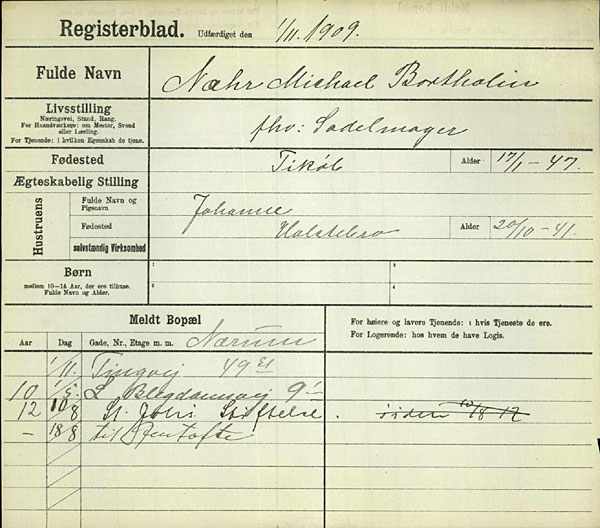 Registerblad. Udfærdiget den 1/11. 1909.
Fulde Navn
Næhr Michael Bartholin
Livsstilling
Næringsvej, Stand, Rang.
For Haandværkere: om Mester, Svend
eller Lærling.
For Tjenende: i hvilken Egenskab de tjene.
fhv: Sadelmager
Fødested
Tikøb
Alder 17/1 - 47.
Ægteskabelig Stilling
Hustruens
Fulde Navn og
Pigenavn
Johanne
Fødested
Holstebro
Alder 20/10 - 41.
selvstændig Virksomhed
Børn
mellem 10-14 Aar, der ere tilhuse.
Fulde Navn og Alder.
1
2
3
4
Meldt Bopæl
Nærum
For høiere og lavere Tjenende: i hvis Tjeneste de ere.
For Logerende: hos hvem de have Logis.
Aar Dag Gade, Nr., Etage m. m.
1/11. Tingvej 49 St
10 1/5. L. Blegdamsvej 9
12 10/8 St. Johs Stiftelse. siden 10/8 12
- 18/8 til Gentofte